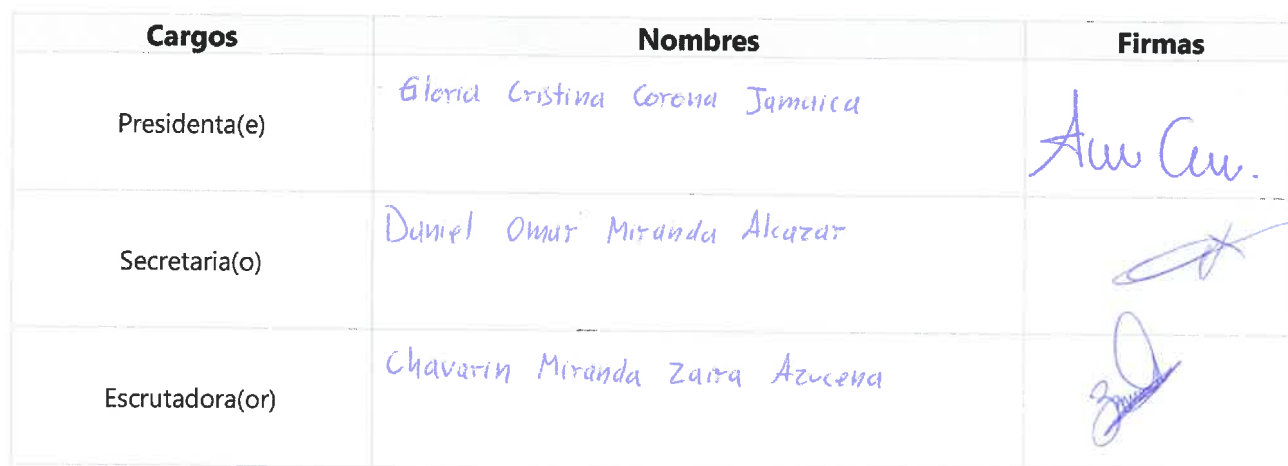 Cargos Nombres Firmas
Presidenta(e) Gloria Cristina Corona Jamaica
Secretaria(o) Daniel Omar Miranda Alcazar
Escrutadora(or) Chavarin Miranda Zaira Azucena